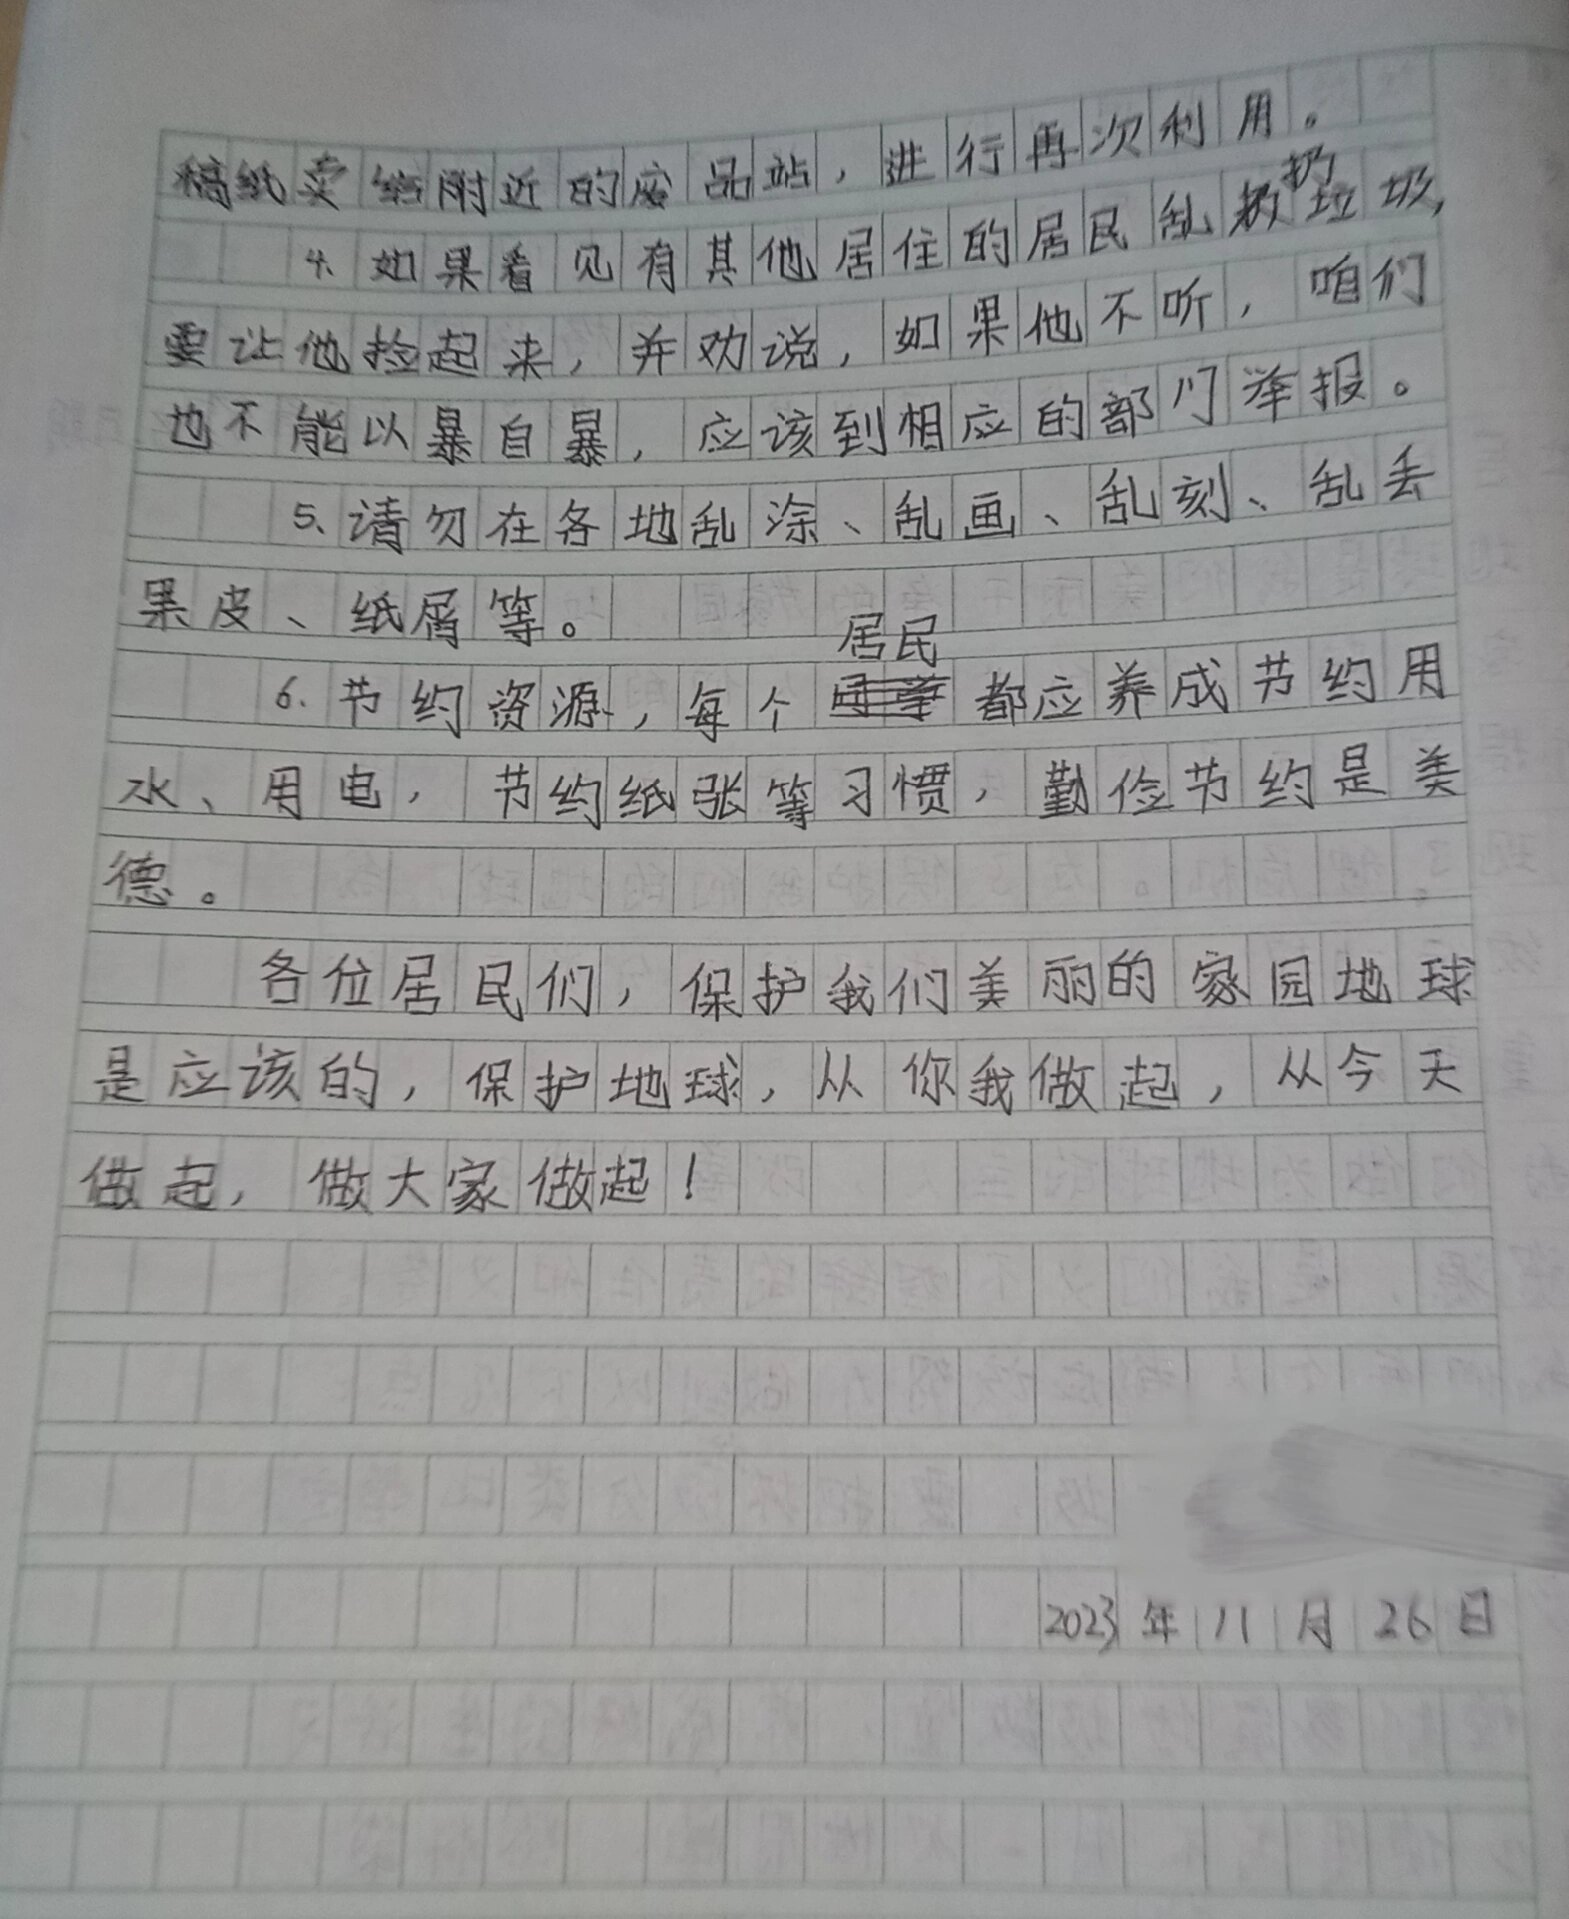 稿纸卖给附近的废品站，进行再次利用。
4.如果看见有其他居住的居民乱扔垃圾，
要让他捡起来，并劝说，如果他不听，咱们
也不能以暴自暴，应该到相应的部门举报。
5、请勿在各地乱涂、乱画、乱刻、乱丢
果皮、纸屑等。
6.节约资源，每个居民都应养成节约用
水、用电，节约纸张等习惯，勤俭节约是美
德。
各位居民们，保护我们美丽的家园地球
是应该的，保护地球，从你我做起，从今天
做起，做大家做起！
2023年11月26日